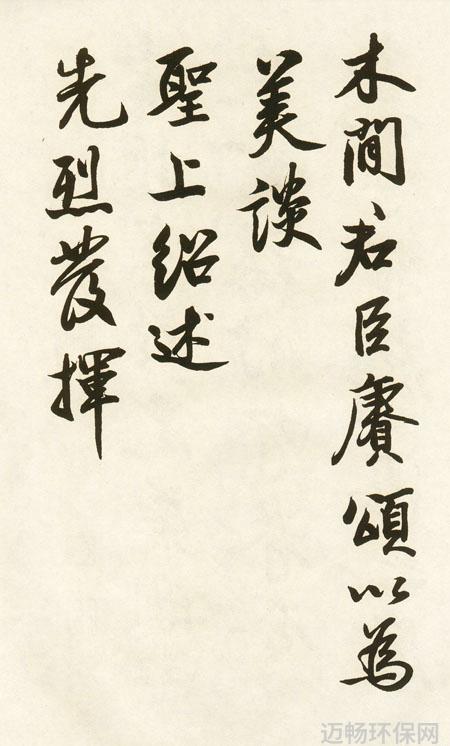 木間君臣賡頌以為
美談
聖上紹述
先烈發揮
迈畅环保网